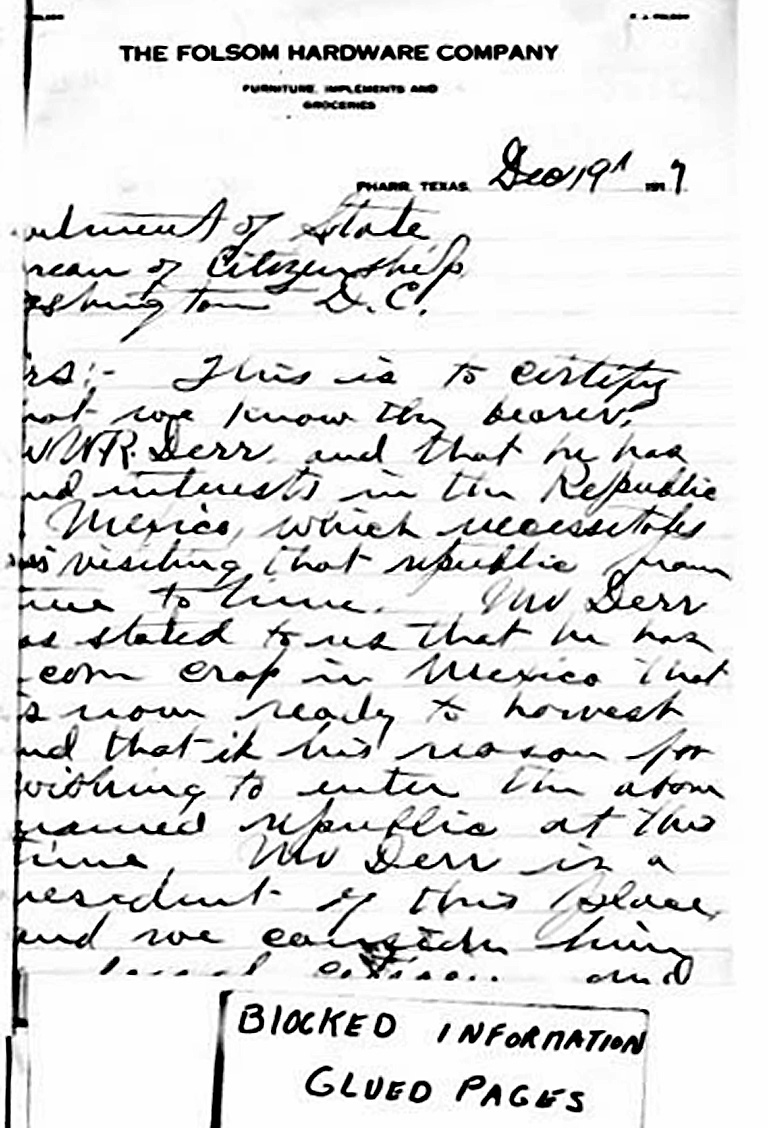 THE FOLSOM HARDWARE COMPANY
FURNITURE, IMPLEMENTS AND
GROCERIES
PHARR, TEXAS, Dec 19th 1917
utment of State
reau of Citizenship
ashington D.C.
rs:- This is to certify
hat we know the bearer,
WR. Derr, and that he has
nd interests in the Republic
Mexico, which necessitates
his visiting that republic from
ime to time. Mr Derr
as stated to us that he has
corn crop in Mexico that
s now ready to harvest
nd that is his reason for
wishing to enter the above
named republic at this
time, Mr Derr is a
resident of this place,
and we consider him
loyal citizen and
BLOCKED INFORMATION
GLUED PAGES